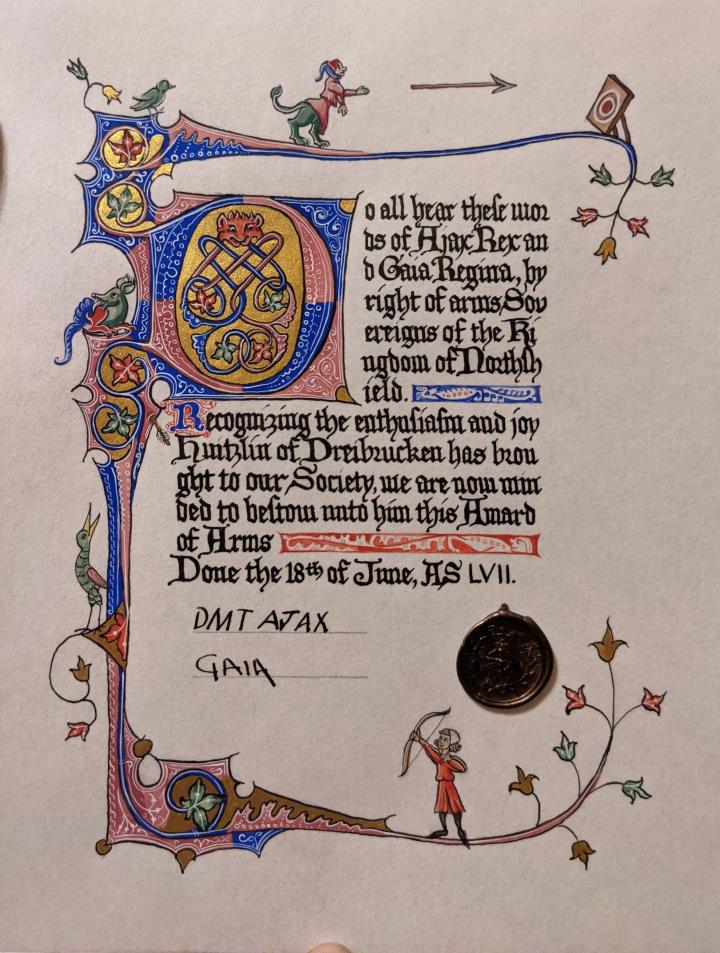 To all hear theſe wor
ds of Ajax Rex an
d Gaia Regina, by
right of arms Sov
ereigns of the Ki
ngdom of Northſh
ield.
Recognizing the enthuſiaſm and joy
Hintzlin of Dreibrucken has brou
ght to our Society, we are now min
ded to beſtow unto him this Award
of Arms
Done the 18th of June, AS LVII.
DMT AJAX
GAIA